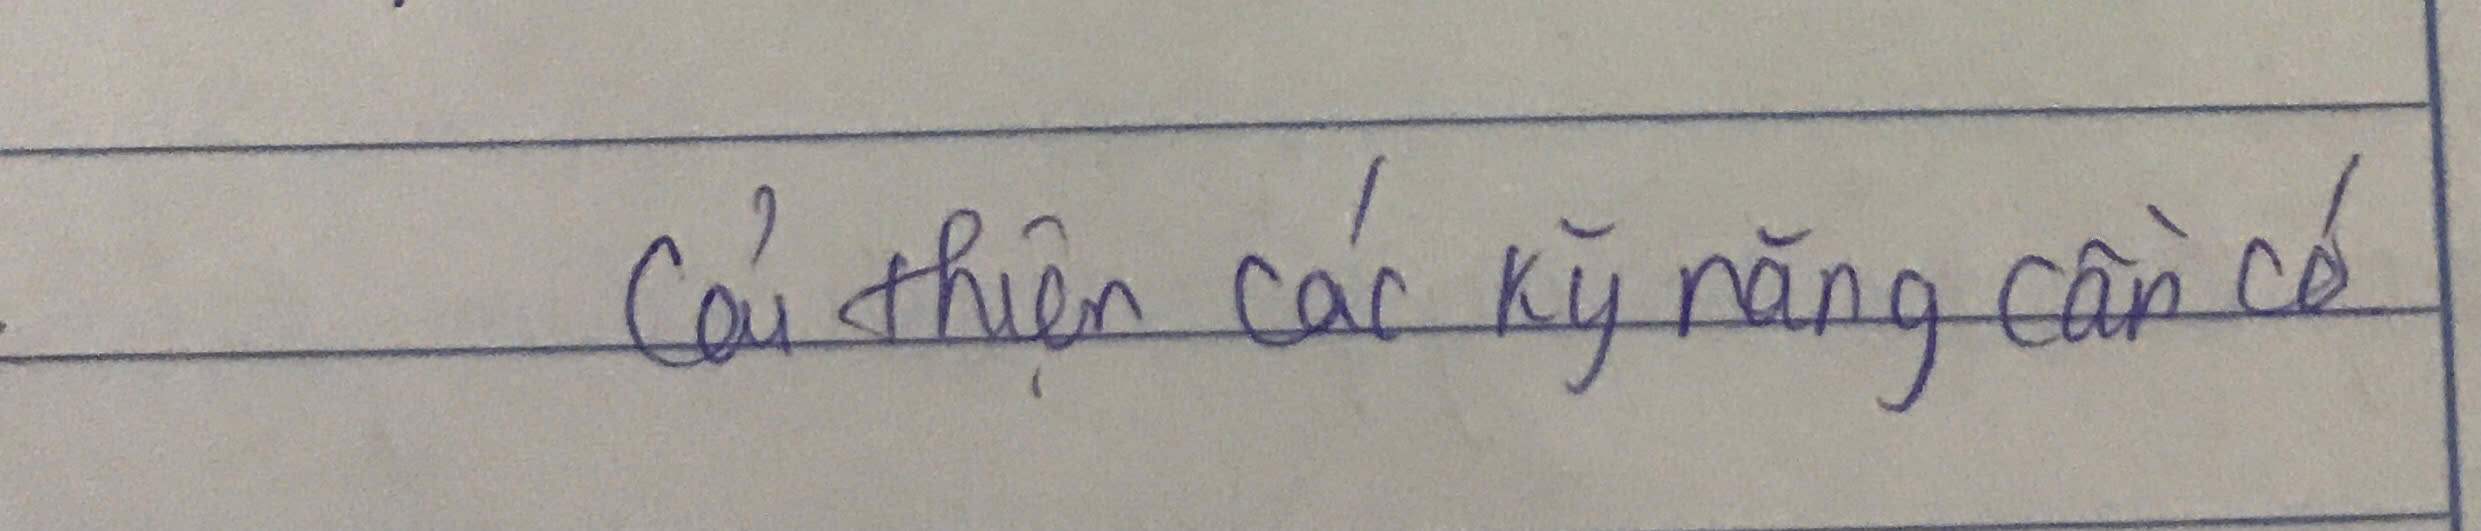 Cải thiện các kỹ năng cần có